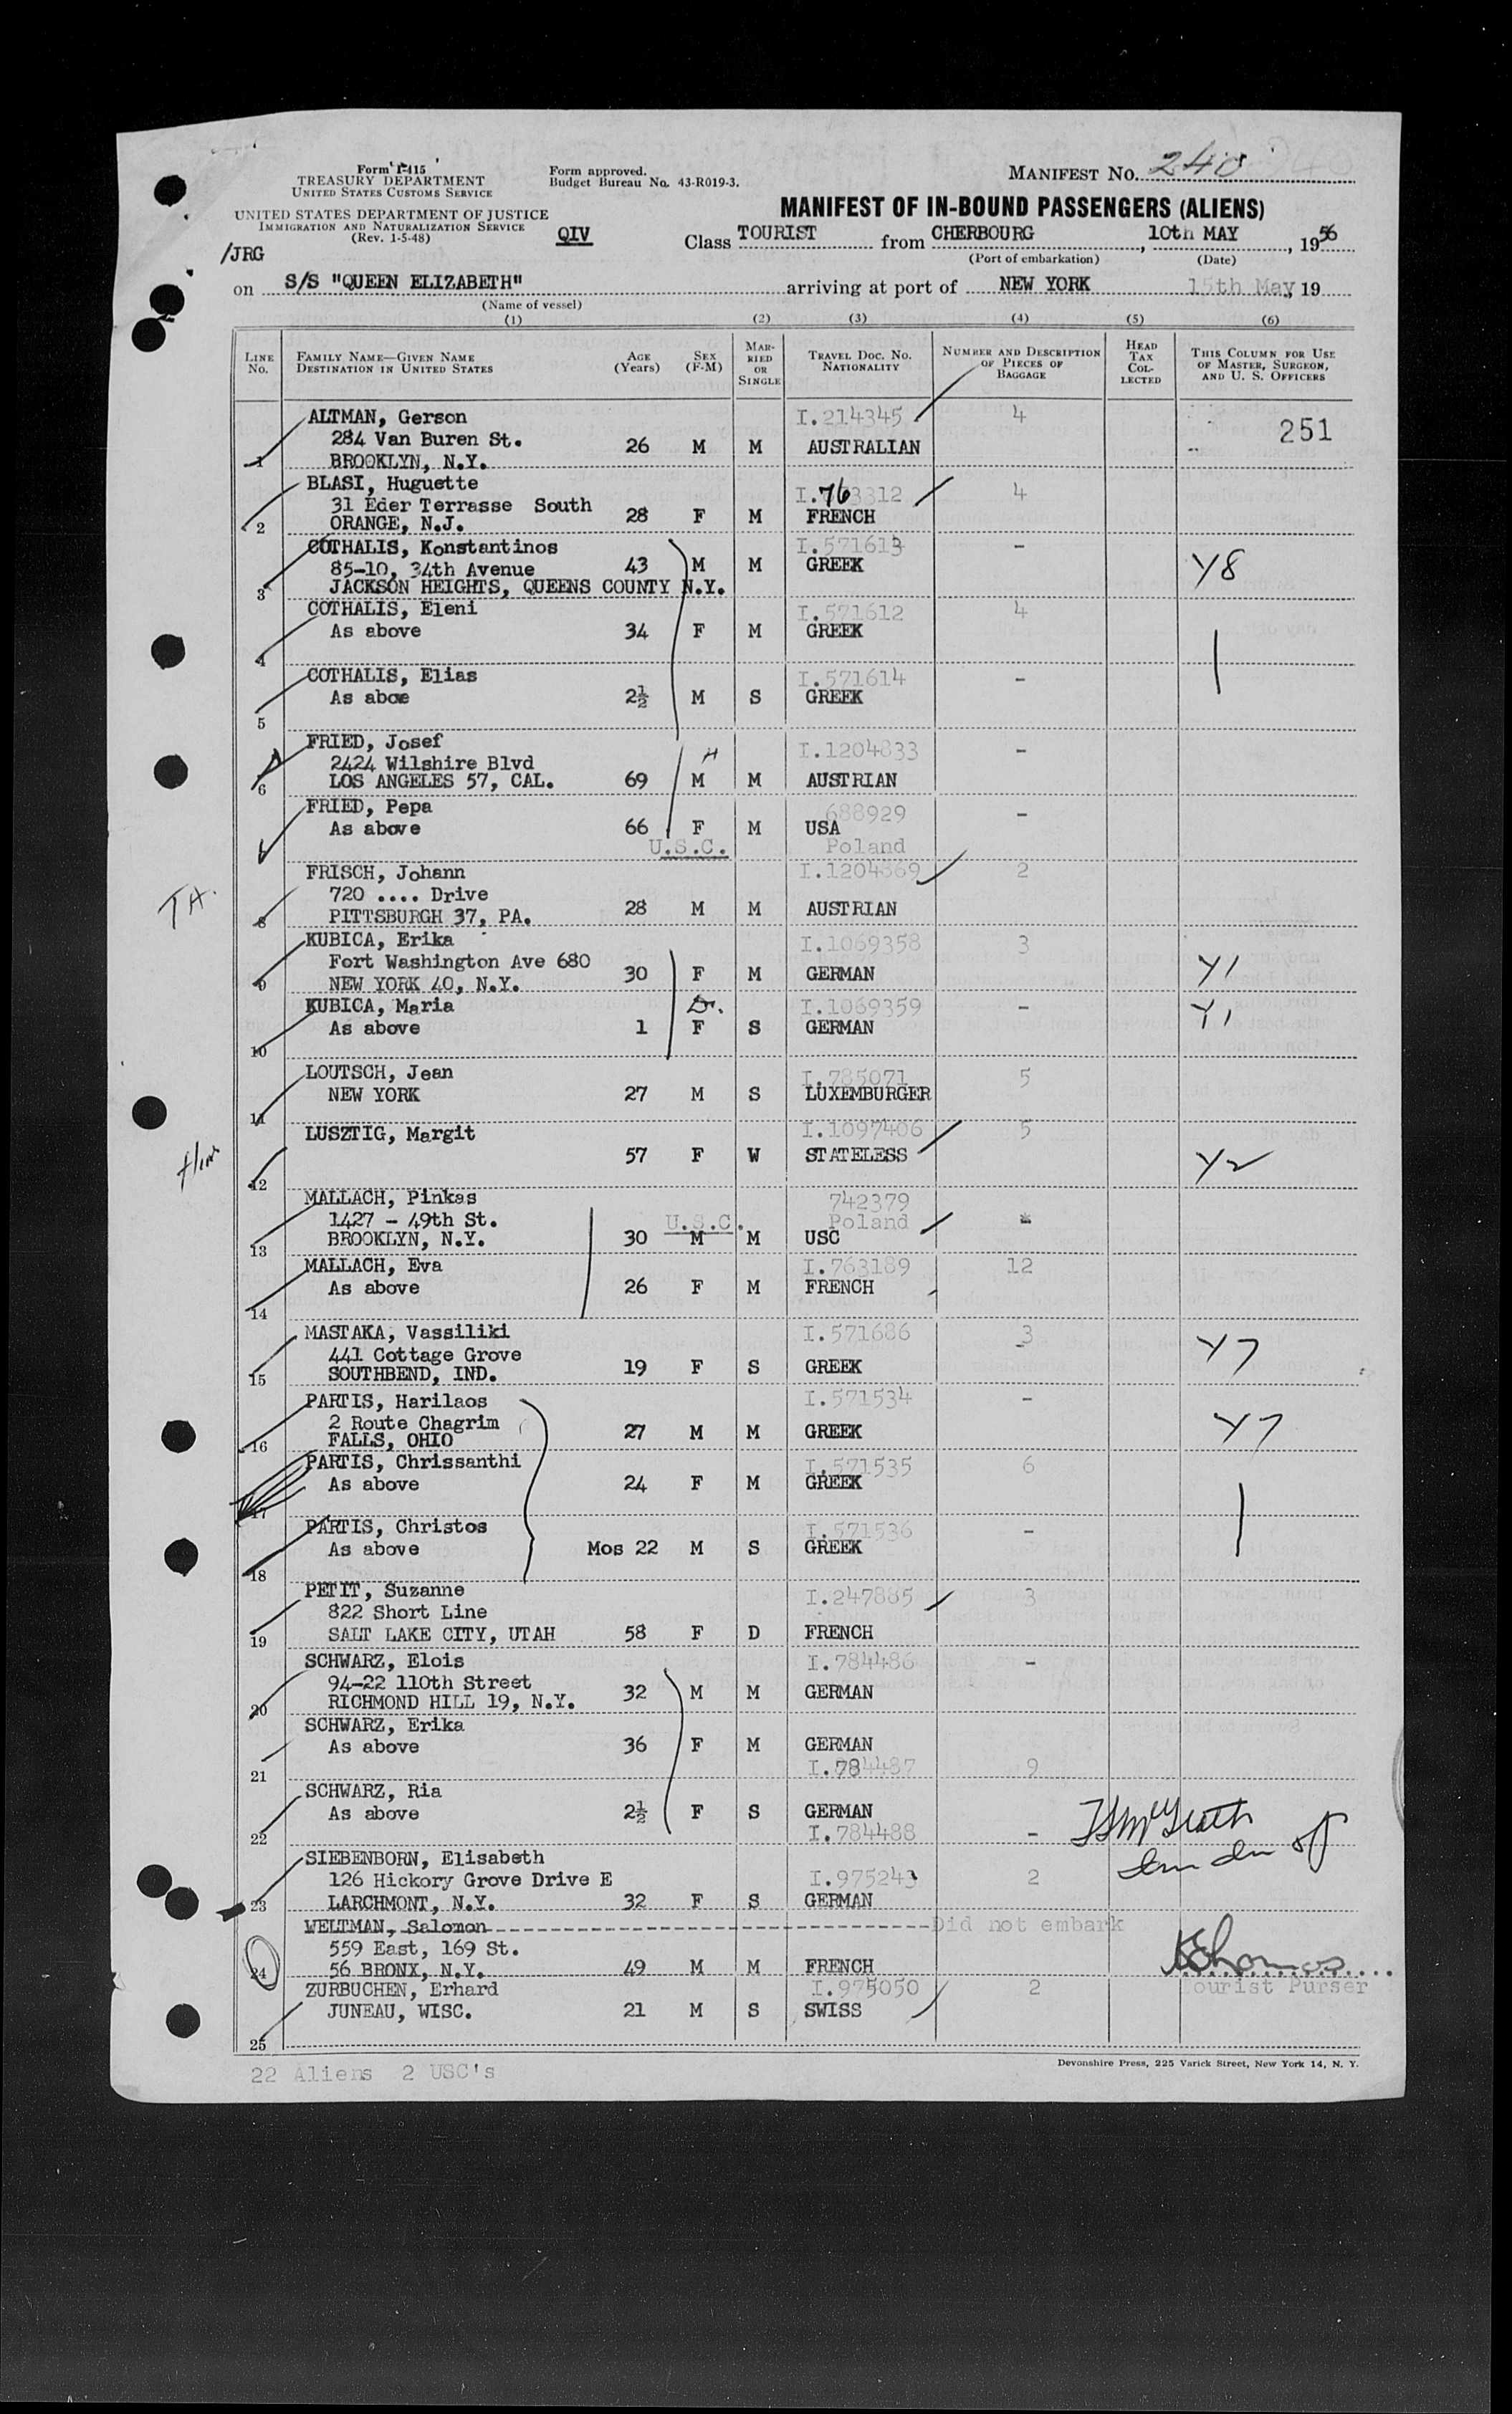 Form I-415
TREASURY DEPARTMENT
UNITED STATES CUSTOMS SERVICE
Form approved.
Budget Bureau No. 43-R019-3.
MANIFEST No. 240
UNITED STATES DEPARTMENT OF JUSTICE
IMMIGRATION AND NATURALIZATION SERVICE
(Rev. 1-5-48)
/JRG
QIV
MANIFEST OF IN-BOUND PASSENGERS (ALIENS)
Class TOURIST from CHERBOURG, 10th MAY, 1956
(Port of embarkation) (Date)
on S/S "QUEEN ELIZABETH" arriving at port of NEW YORK 15th May, 19
(Name of vessel)
(1) (2) (3) (4) (5) (6)
LINE No. FAMILY NAME—GIVEN NAME DESTINATION IN UNITED STATES AGE (Years) SEX (F-M) MARRIED OR SINGLE TRAVEL DOC. NO. NATIONALITY NUMBER AND DESCRIPTION OF PIECES OF BAGGAGE HEAD TAX COLLECTED THIS COLUMN FOR USE OF MASTER, SURGEON, AND U. S. OFFICERS
ALTMAN, Gerson I.214345 4
284 Van Buren St. 251
1 BROOKLYN, N.Y. 26 M M AUSTRALIAN
BLASI, Huguette I.763312 4
31 Eder Terrasse South
2 ORANGE, N.J. 28 F M FRENCH
COTHALIS, Konstantinos I.571613 -
85-10, 34th Avenue 43 M M GREEK Y8
3 JACKSON HEIGHTS, QUEENS COUNTY N.Y.
COTHALIS, Eleni I.571612 4
4 As above 34 F M GREEK
COTHALIS, Elias I.571614 -
5 As aboe 2½ M S GREEK
FRIED, Josef I.1204833 -
2424 Wilshire Blvd
6 LOS ANGELES 57, CAL. 69 M M AUSTRIAN
FRIED, Pepa 688929 -
As above 66 F M USA
U.S.C. Poland
FRISCH, Johann I.1204869 2
720 .... Drive
TA.
8 PITTSBURGH 37, PA. 28 M M AUSTRIAN
KUBICA, Erika I.1069358 3
Fort Washington Ave 680
9 NEW YORK 40, N.Y. 30 F M GERMAN Y1
KUBICA, Maria I.1069359 - Y1
10 As above 1 F S GERMAN
LOUTSCH, Jean I.785071 5
11 NEW YORK 27 M S LUXEMBURGER
LUSZTIG, Margit I.1097406 5
12 57 F W STATELESS Y2
MALLACH, Pinkas 742379
1427 - 49th St. U.S.C. Poland
13 BROOKLYN, N.Y. 30 M M USC
MALLACH, Eva I.763189 12
14 As above 26 F M FRENCH
MASTAKA, Vassiliki I.571686 3
441 Cottage Grove
15 SOUTHBEND, IND. 19 F S GREEK Y7
PARTIS, Harilaos I.571534 -
2 Route Chagrim
16 FALLS, OHIO 27 M M GREEK Y7
PARTIS, Chrissanthi I.571535 6
17 As above 24 F M GREEK
PARTIS, Christos I.571536 -
18 As above Mos 22 M S GREEK
PETIT, Suzanne I.247885 3
822 Short Line
19 SALT LAKE CITY, UTAH 58 F D FRENCH
SCHWARZ, Elois I.784486 -
94-22 110th Street
20 RICHMOND HILL 19, N.Y. 32 M M GERMAN
SCHWARZ, Erika
As above 36 F M GERMAN
21 I.784487 9
SCHWARZ, Ria
As above 2½ F S GERMAN
22 I.784488 -
SIEBENBORN, Elisabeth
126 Hickory Grove Drive E I.975243 2
23 LARCHMONT, N.Y. 32 F S GERMAN
WELTMAN, Salomon Did not embark
559 East, 169 St.
24 56 BRONX, N.Y. 49 M M FRENCH
ZURBUCHEN, Erhard I.975050 2 Tourist Purser
JUNEAU, WISC. 21 M S SWISS
25
22 Aliens 2 USC's
Devonshire Press, 225 Varick Street, New York 14, N. Y.